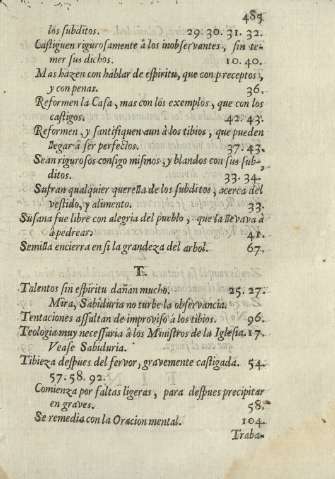 485
los subditos. 29. 30. 31. 32.
Castiguen rigurosamente â los inobservantes, sin te-
mer sus dichos. 10. 40.
Mas hazen con hablar de espiritu, que con preceptos,
y con penas. 36.
Reformen la Casa, mas con los exemplos, que con los
castigos. 42. 43.
Reformen, y santifiquen aun â los tibios, que pueden
llegar â ser perfectos. 37. 43.
Sean rigurosos consigo mismos, y blandos con sus sub-
ditos. 33. 34.
Sufran qualquier querella de los subditos, acerca del
vestido, y alimento. 33.
Susana fue libre con alegria del pueblo, que la llevava â
âpedrear. 41.
Semilla encierra en si la grandeza del arbol. 67.
T.
Talentos sin espiritu dañan mucho. 25. 27.
Mira, Sabiduria no turbe la observancia.
Tentaciones assaltan de improviso â los tibios. 96.
Teologia muy necessaria â los Ministros de la Iglesia. 17.
Vease Sabiduria.
Tibieza despues del fervor, gravemente castigada. 54.
57. 58. 92.
Comienza por faltas ligeras, para despues precipitar
en graves. 58.
Se remedia con la Oracion mental. 104.
Traba-